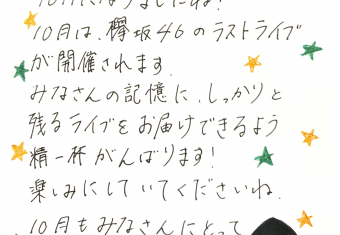 10月になりましたね!
10月は、欅坂46のラストライブ
が開催されます.
みなさんの記憶に、しっかりと
残るライブをお届けできるよう
精一杯がんばります!
楽しみにしていてくださいね.
10月もみなさんにとって